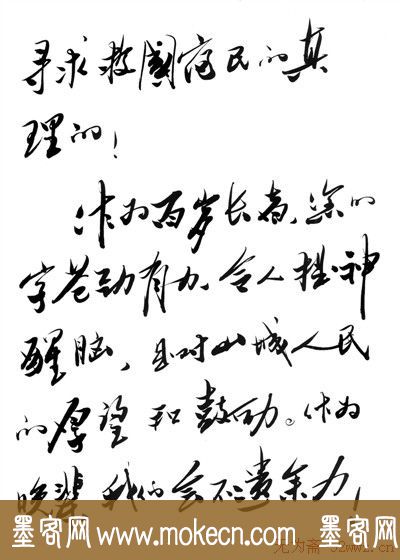 寻求救國富民的真
理的！
作为百岁长者、您的
字苍劲有力、令人提神
醒脑，是对山城人民
的厚望和鼓励。作为
晚辈我们会不遗余力！
无为斋 52wwz.cn
墨客网 www.mokecn.com 墨客网